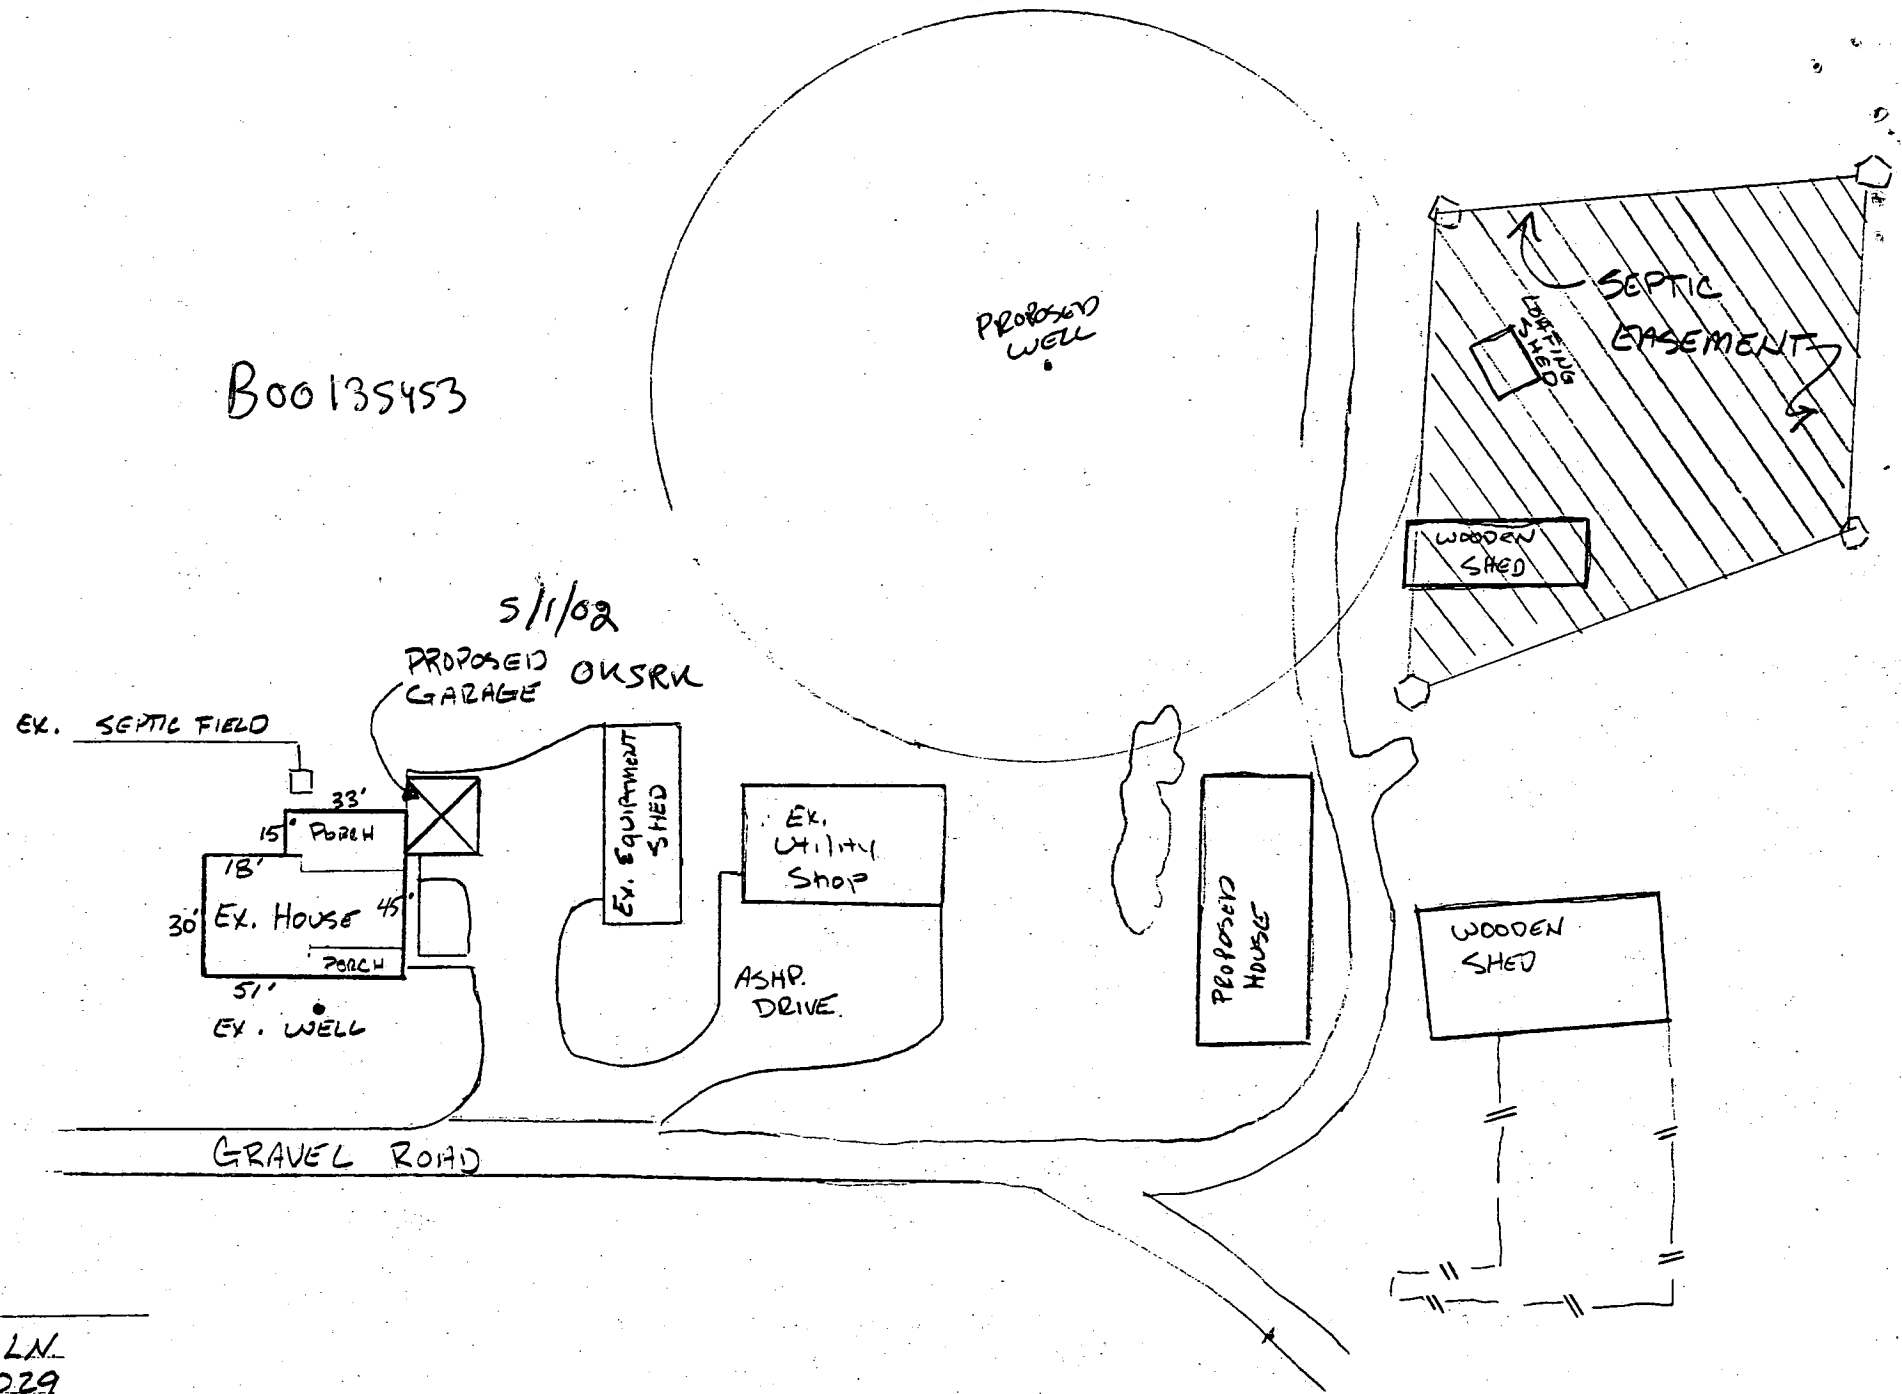 PROPOSED
WELL
SEPTIC
EASEMENT
LOAFING
SHED
B00135453
WOODEN
SHED
5/1/02
PROPOSED
GARAGE
OKSRK
EX. SEPTIC FIELD
33'
15'
PORCH
18'
30'
EX. HOUSE
45'
PORCH
51'
EX. WELL
EX. EQUIPMENT
SHED
EX.
Utility
Shop
ASHP.
DRIVE.
PROPOSED
HOUSE
WOODEN
SHED
GRAVEL ROAD
LN.
029